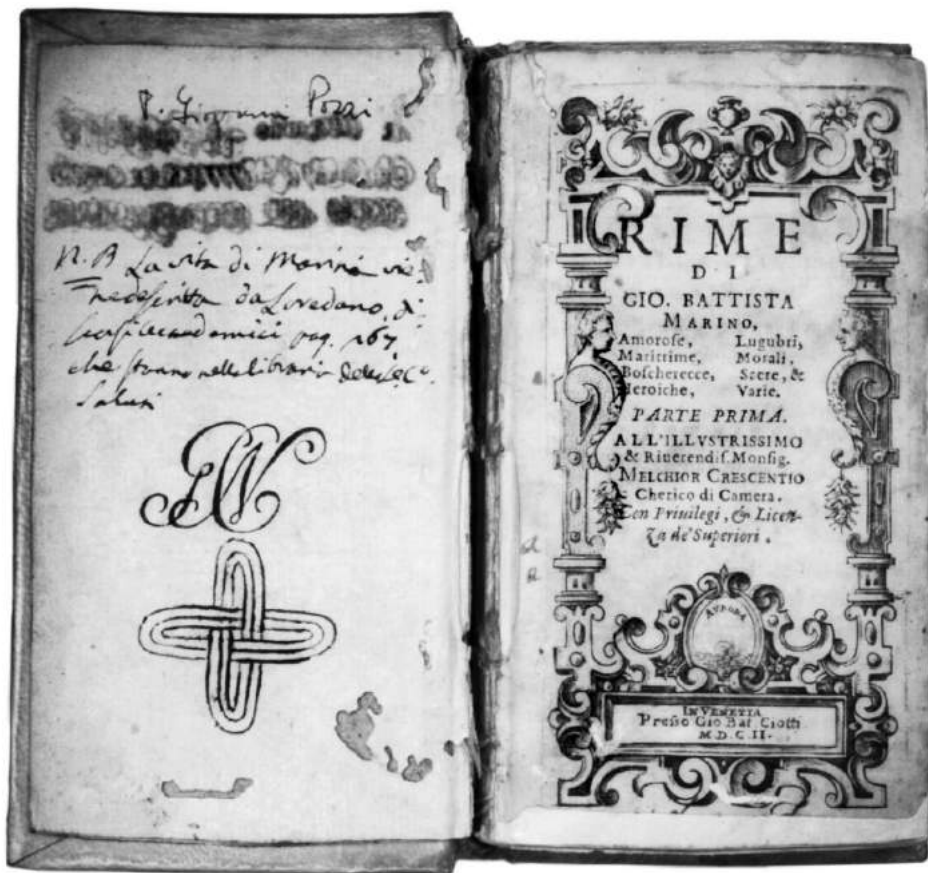 P. Giovanni Pozzi
N. B La vita di Marini vie
ne descritta da Loredano, di
pag. 167
che stanno nella libraria
Saluti
RIME
DI
GIO. BATTISTA
MARINO,
Amorose, Lugubri,
Marittime, Morali,
Boscherecce, Sacre, &
Heroiche, Varie.
PARTE PRIMA.
ALL'ILLVSTRISSIMO
& Riuerendiſ. Monſig.
MELCHIOR CRESCENTIO
Cherico di Camera.
Con Priuilegi, & Licen-
za de' Superiori.
AVRORA
IN VENETIA
Presso Gio Bat Ciotti
M. D. C. II.